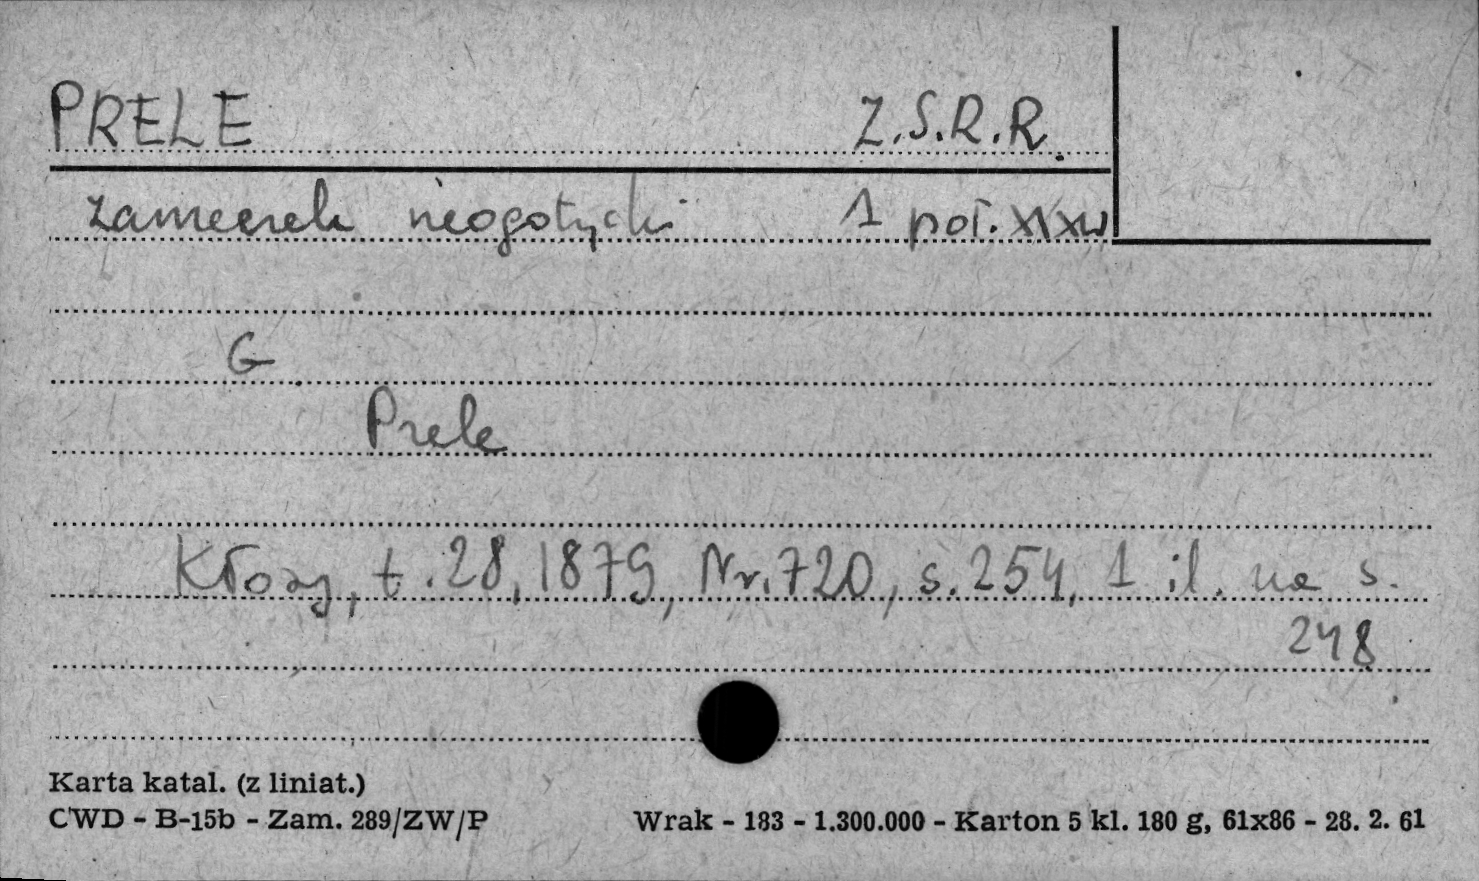 PRELE Z.S.R.R.
zameczek neogotycki 1 poł. XIXw
G
Prele
Kłosy, t. 28, 1879, Nr. 720, s. 254, 1 il. na s.
248
Karta katal. (z liniat.)
CWD - B-15b - Zam. 289/ZW/P Wrak - 183 - 1.300.000 - Karton 5 kl. 180 g, 61x86 - 28. 2. 61